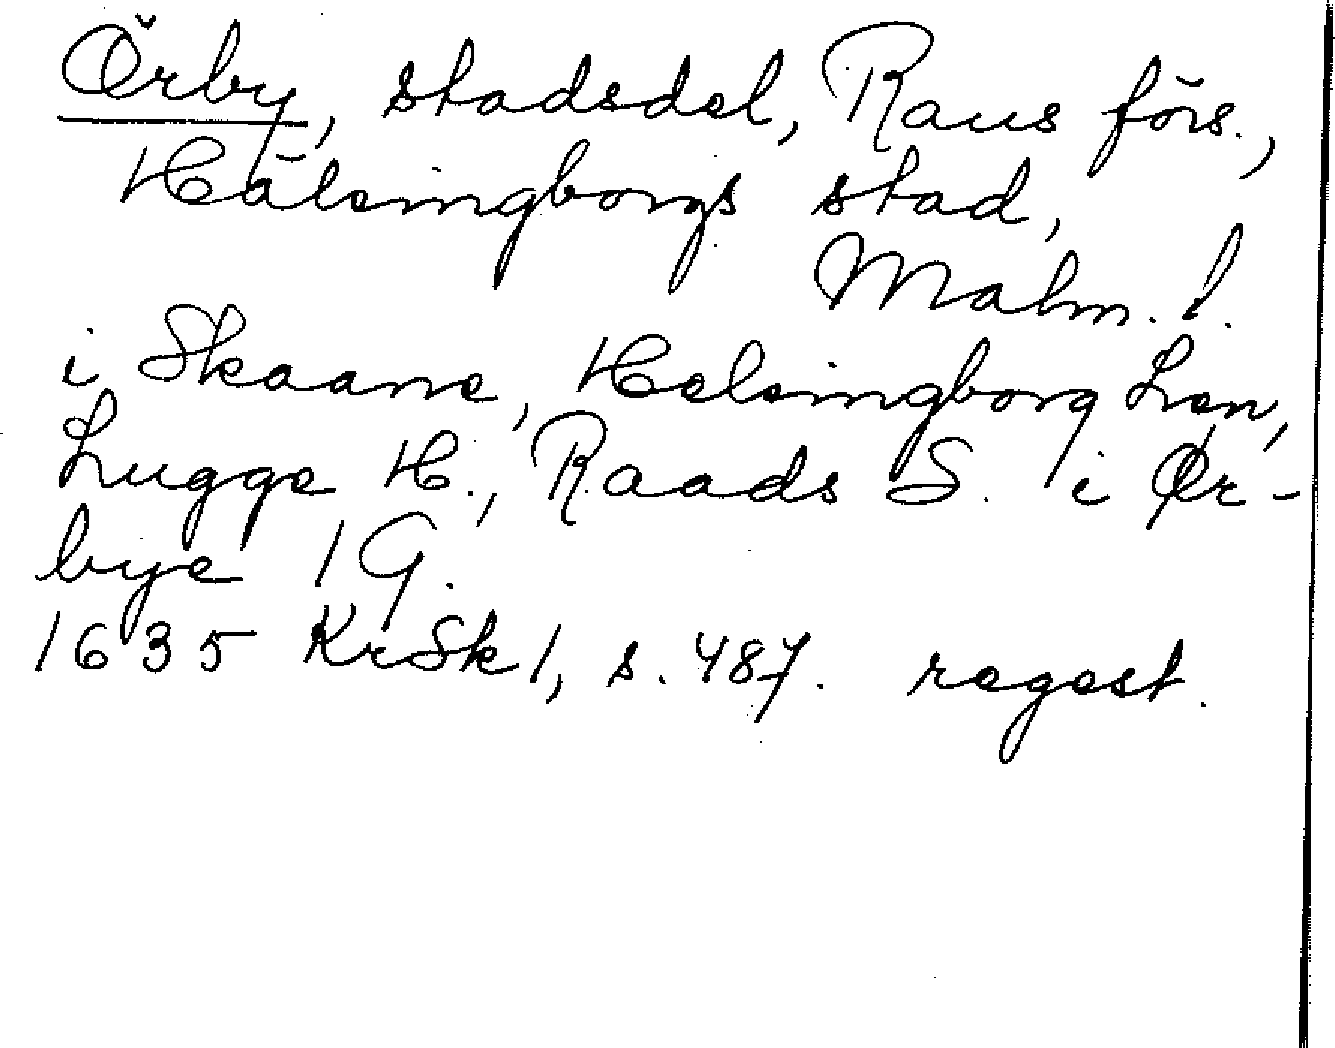 Örby, stadsdel, Raus förs.,
Hälsingborgs stad,
Malm. l.
i Skaane, Helsingborg Len,
Lugge H., Raads S. i Ør-
bye 1 G.
1635 KrSk 1, s. 487. regest.